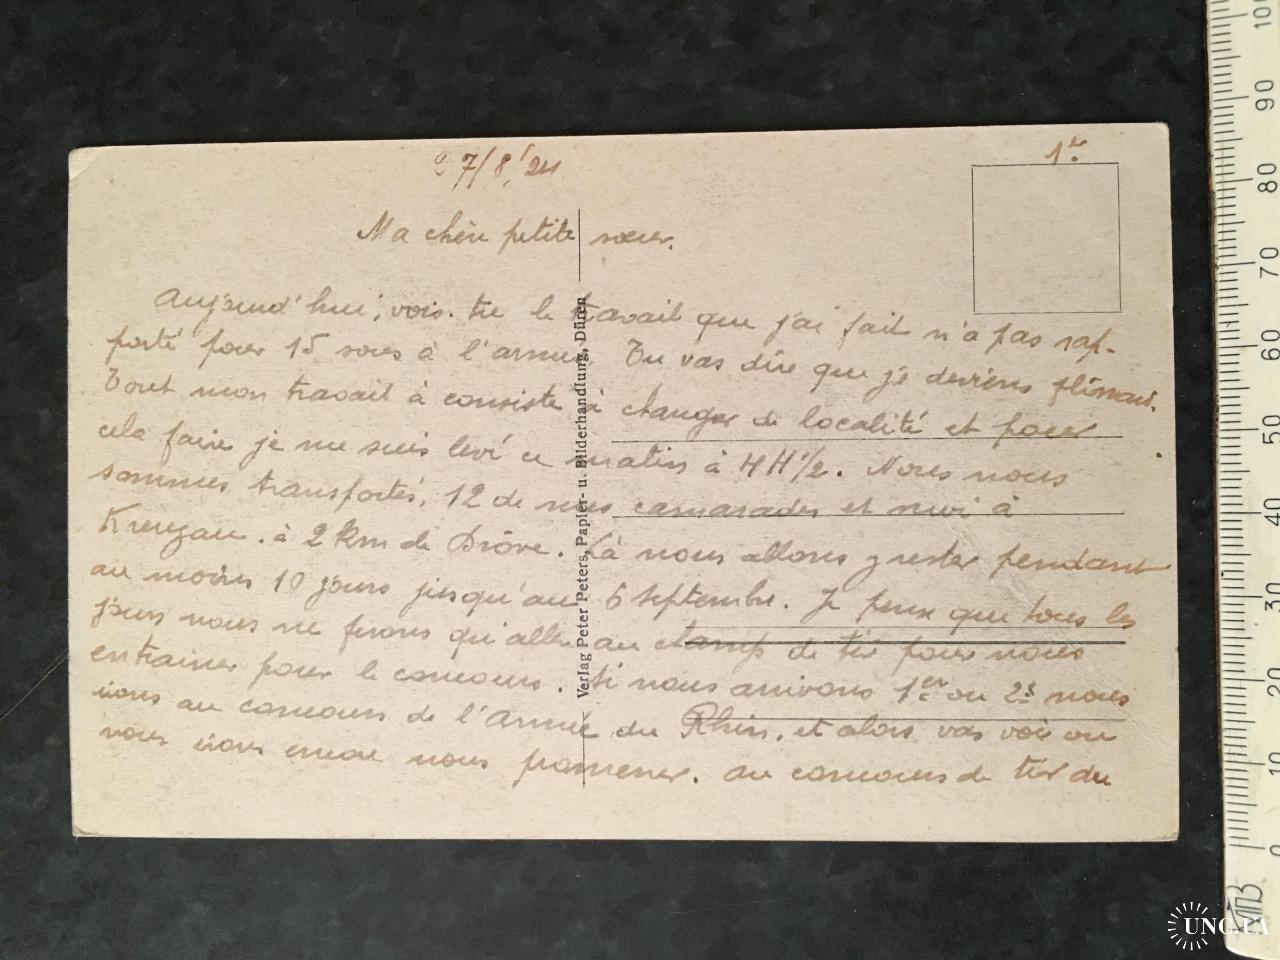 27/8/24
1er
Ma chère petite sœur.
Aujourd'hui, vois-tu le travail que j'ai fait n'a pas rap-
porté pour 15 sous à l'armée. Tu vas dire que je deviens flémard.
Tout mon travail à consisté à changer de localité et pour
cela faire je me suis levé ce matin à 4H 1/2. Nous nous
sommes transportés, 12 de mes camarades et moi à
Kreuzau. à 2 km de Drove. Là nous allons y rester pendant
au moins 10 jours jusqu'au 6 septembre. Je peux que tous les
jours nous ne ferons qu'aller au champ de tir pour nous
entrainer pour le concours. Si nous arrivons 1er ou 2e nous
irons au concours de l'Armée du Rhin, et alors vas voir ou
nous irons encore nous promener. au concours de tir du
Verlag Peter Peters, Papier- u. Bilderhandlung, Düren
0 10 20 30 40 50 60 70 80 90 100
ТПВ
UNC.UA